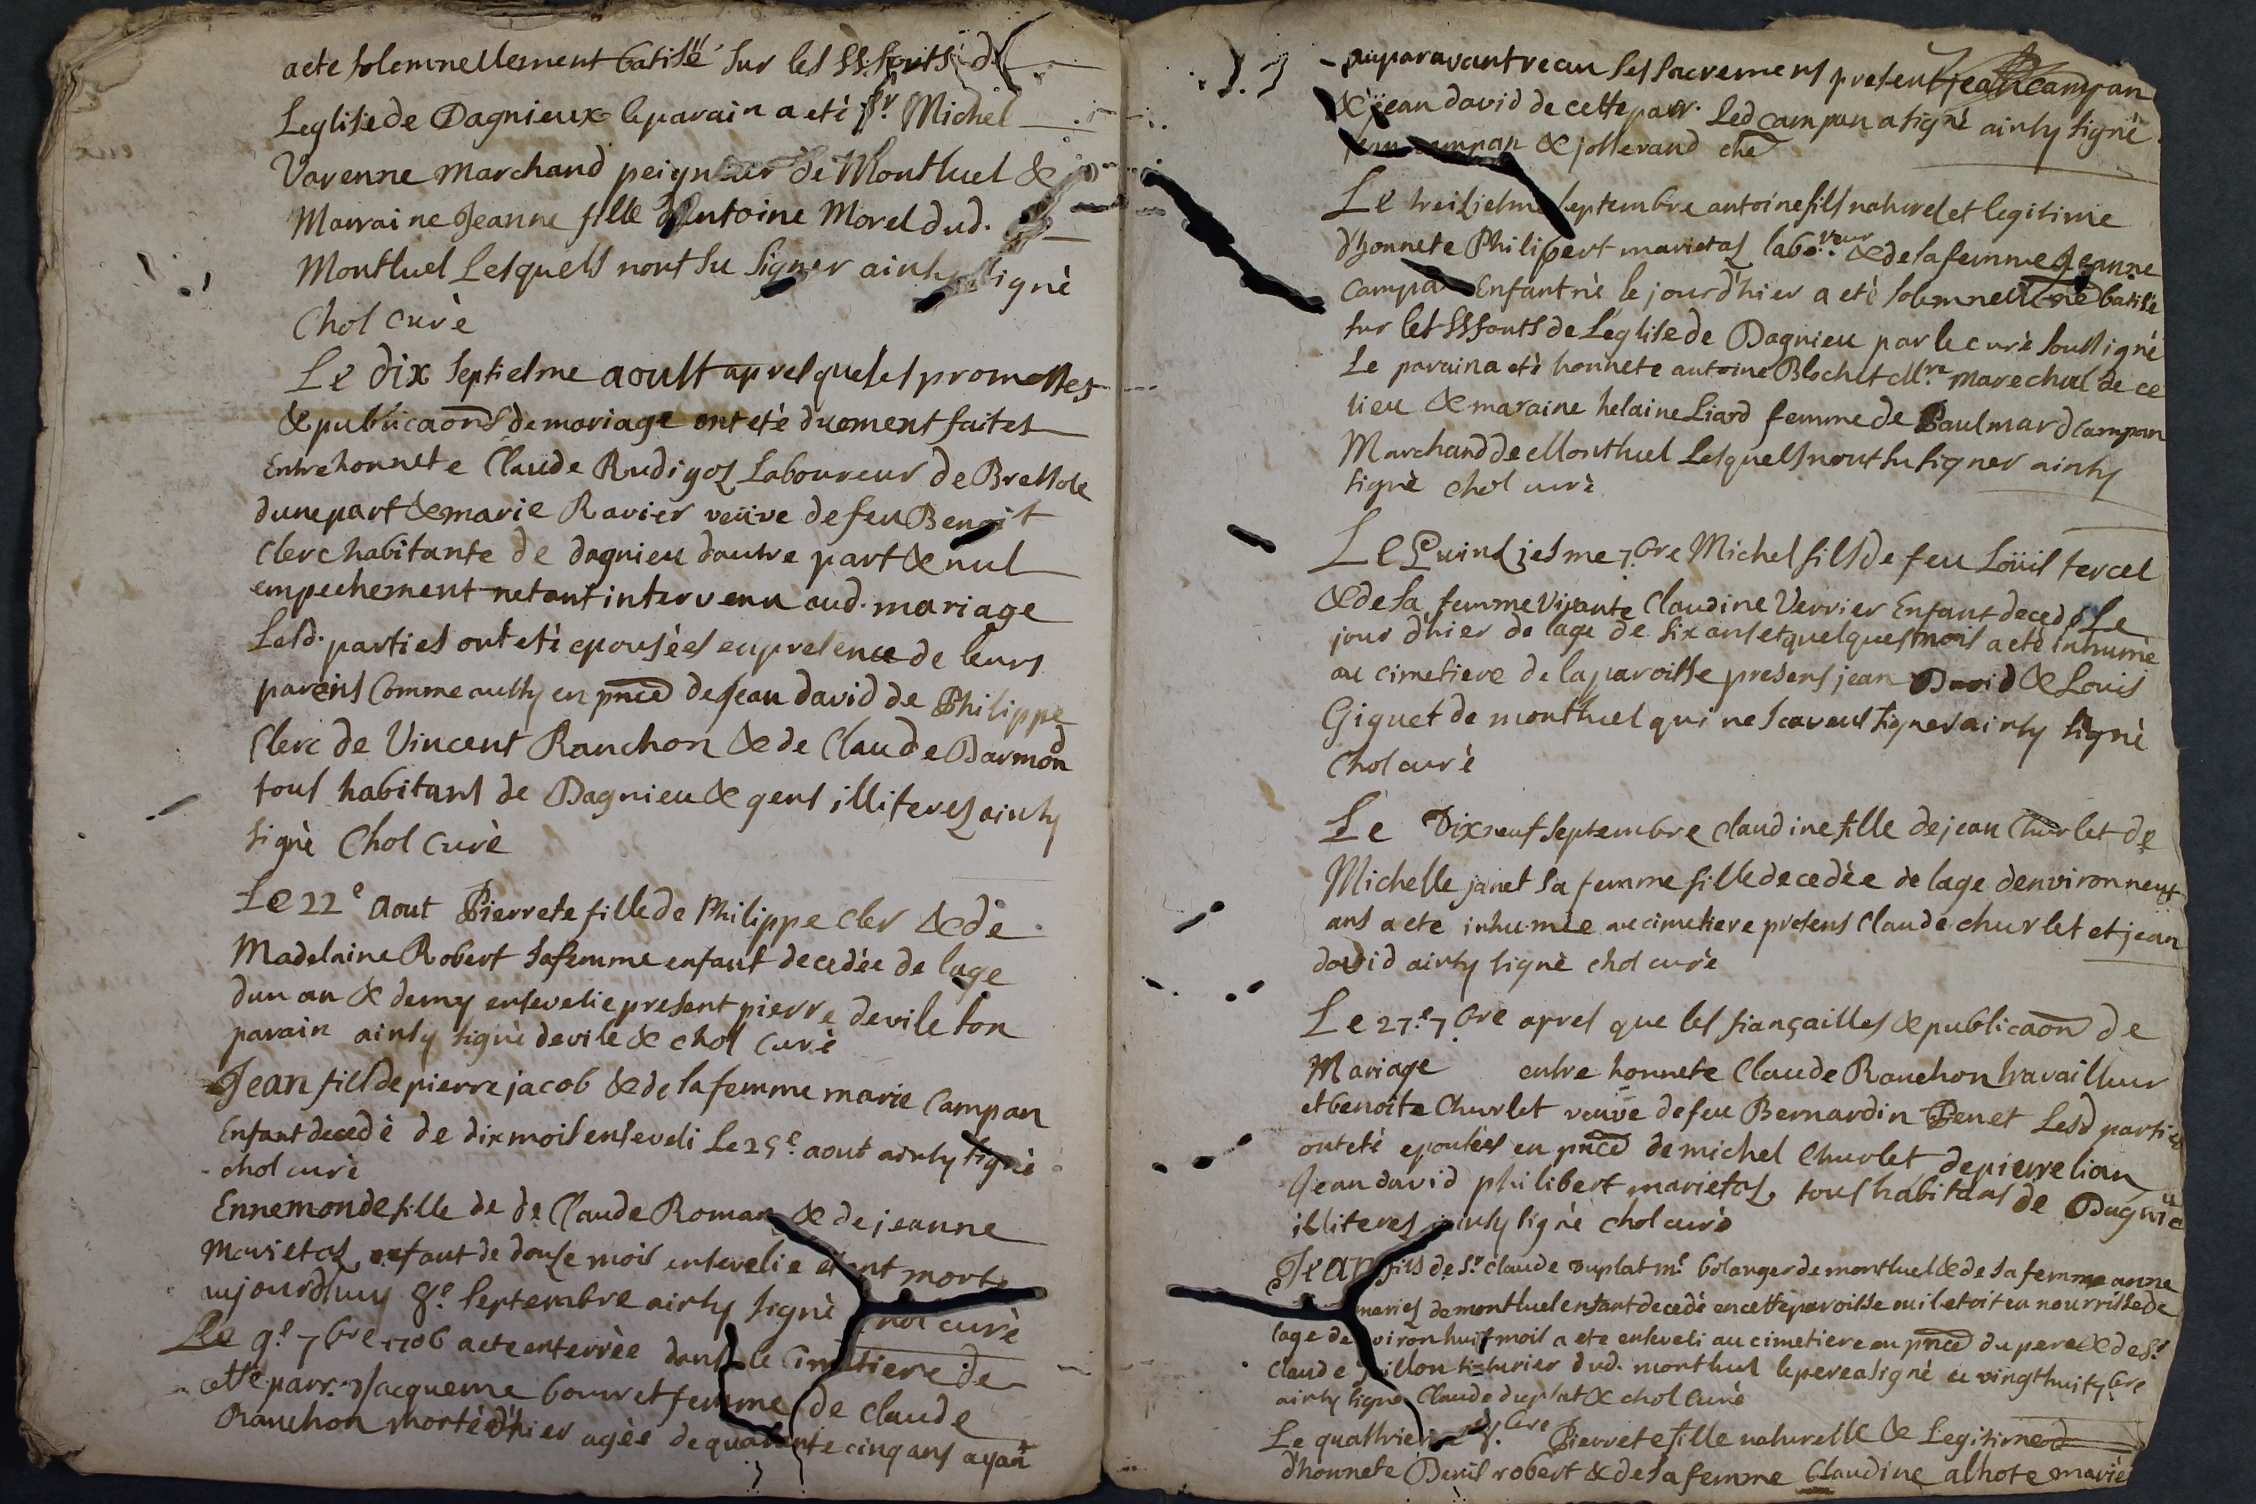 a ete solemnellement batisé sur les SS. fonts d
Leglise de Dagnieux le parain a etè Sr. Michel
Varenne marchand peigneur de Montluel &
Marraine Jeanne fille dAntoine Morel dud.
Montluel Lesquels nont su signer ainsy signè
Chol curè
Le dix septiesme aoust apres que les promesses
& publicaons de mariage ont etè duement faites
Entre honnete Claude Rudigoz Laboureur de Bressole
dune part & marie Ravier veüve de feu Benoit
Clerc habitante de dagnieu dautre part & nul
empechement netant intervenu aud. mariage
Lesd. parties ont etè epousèes en presence de leurs
parens Comme aussy en pnce de Jean david de Philippe
Clerc de Vincent Ranchon & de Claude Darmon
tous habitans de Dagnieu & gens illiterez ainsy
signè Chol Curè
Le 22e Aout Pierrete fille de Philippe Cler & de
Madelaine Robert sa femme enfant decedèe de lage
dun an & demy ensevelie present pierre devile son
parain ainsy signè devile & chol Curè
Jean fils de pierre jacob & de sa femme marie Campan
Enfant decedè de dix mois enseveli Le 25e. aout ainsy signè
chol curè
Ennemonde fille de de Claude Roman & de jeanne
Marietaz enfant de douze mois ensevelie etant morte
aujourdhuy 8e. septembre ainsy signè Chol curè
Le 9e. 7bre 1706 a ete enterrèe dans le Cimetiere de
cette parr. Jacqueme bouvret femme de claude
Ranchon morte d'hier agèe de quarante cinq ans ayant
auparavant recu ses sacremens present jean Campan
& jean david de cette parr. Led Campan a signè ainsy signè
jean campan & jollerand
Le treiziesme septembre antoine fils naturel et legitime
d'honnete Philipert marietaz labo.reur & de sa femme Jeanne
Campan Enfant nè le jour d'hier a etè solemnellemt batisè
sur les SS fonts de Léglise de Dagnieu par le curè soussignè
Le parain a etè honnete antoine Blochet M.re marechal de ce
lieu & maraine helaine Liard femme de Paul mard Campan
Marchand de Montluel Lesquels nont su signer ainsy
signè chol curè
Le Quinziesme 7.bre Michel fils de feu Loüis tercel
& de sa femme Vivante Claudine Verrier Enfant decedè Le
jour d'hier de lage de six ans et quelques mois a etè inhumè
au cimetiere de la paroisse presens jean David & Louis
Giguet de montluel qui ne scavent signer ainsy signè
Chol curè
Le Dixneuf septembre claudine fille de jean Churlet de
Michelle janet sa femme fille decedèe de lage denviron neuf
ans a ete inhumèe au cimetiere presens Claude churlet et jean
david ainsy signè chol curè
Le 27.e 7.bre apres que les fiançailles & publicaon de
Mariage entre honnete Claude Ranchon travailleur
et benoite Churlet veüve de feu Bernardin Benet Lesd parties
ont etè epousées en pnce de michel Churlet de pierre lian
Jean david philibert marietaz, tous habitans de Dagnieu
illiterez ainsy signè chol curè
Jean fils de Sr. claude duplat me. bolanger de montluel & de sa femme anne
mariez de montluel enfant decedè en cette paroisse ou il etoit en nourrisse de
lage denviron huit mois a ete enseveli au cimetiere en pnce du pere & de Sr.
Claude teinturier dud. montluel le pere a signè ce vingthuit 7bre
ainsy signe Claude duplat & chol Curè
Le quattrieme 8.bre Pierrete fille naturelle & Legitime
d'honnete Denis robert & de sa femme Claudine alhote mariè